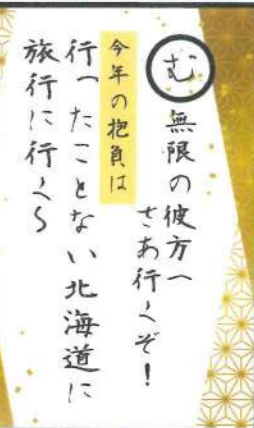 む 無限の彼方へ
さあ行くぞ!
今年の抱負は
行ったことない北海道に
旅行に行く〜